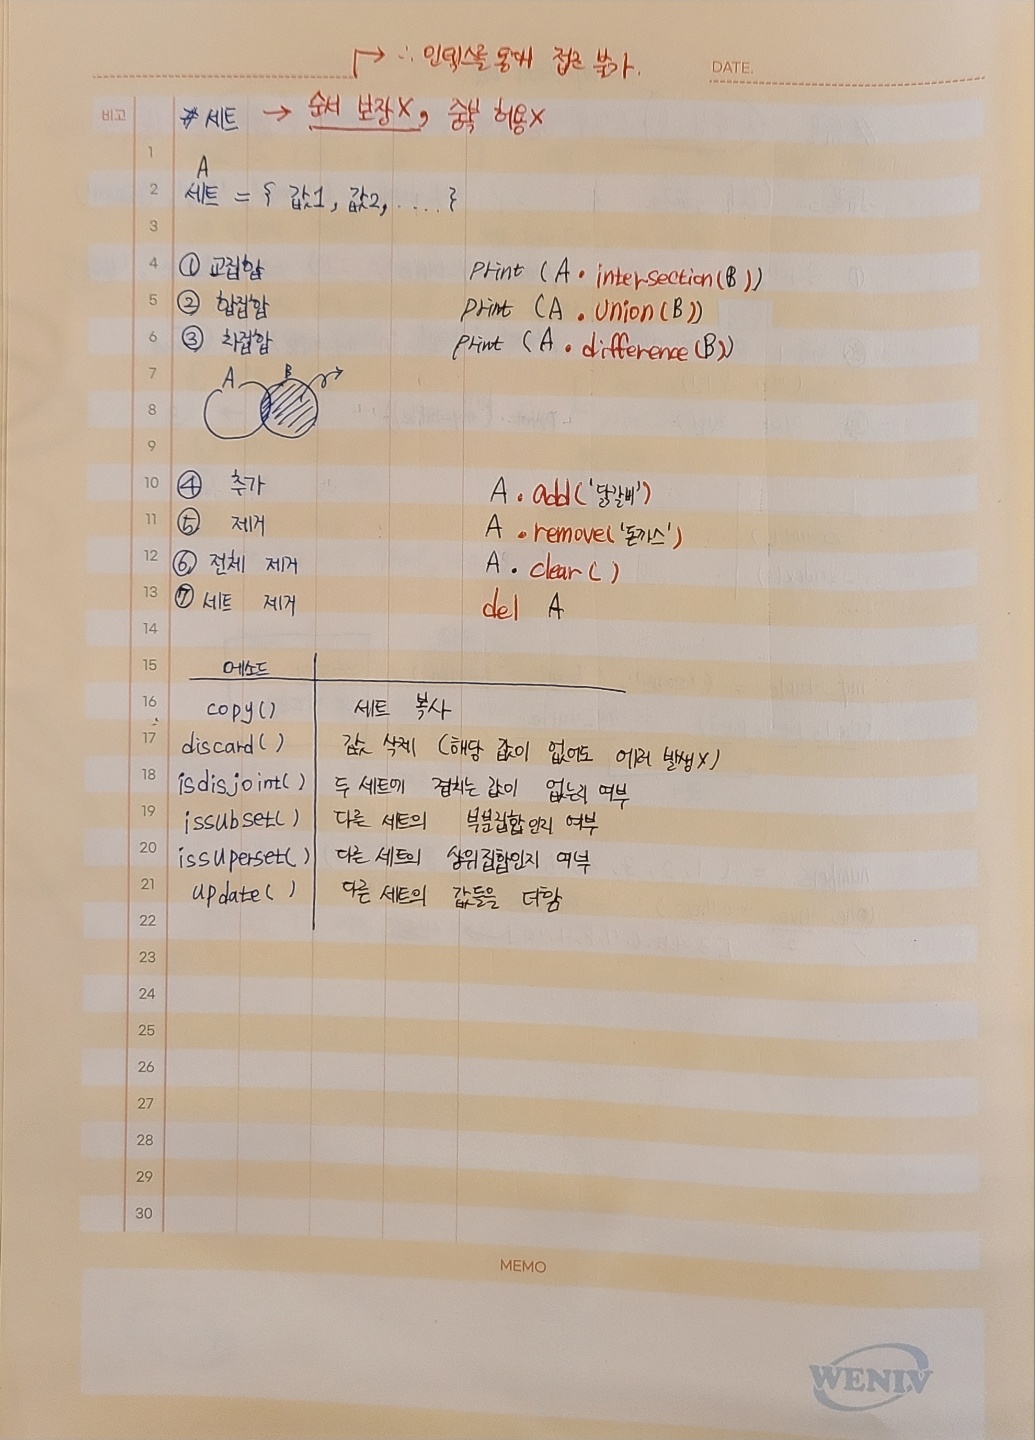 → ∴ 인덱스를 통해 접근 불가.
DATE.
비고 # 세트 → 순서 보장X, 중복 허용X
1
A
2 세트 = { 값1, 값2, .... }
3
4 ① 교집합 print (A.intersection(B))
5 ② 합집합 print (A.union(B))
6 ③ 차집합 print (A.difference(B))
7 A B
8
9
10 ④ 추가 A.add('닭갈비')
11 ⑤ 제거 A.remove('돈까스')
12 ⑥ 전체 제거 A.clear()
13 ⑦ 세트 제거 del A
14
15 메소드
16 copy() 세트 복사
17 discard() 값 삭제 (해당 값이 없어도 에러 발생X)
18 isdisjoint() 두 세트에 겹치는 값이 없는지 여부
19 issubset() 다른 세트의 부분집합인지 여부
20 issuperset() 다른 세트의 상위집합인지 여부
21 update() 다른 세트의 값들을 더함
22
23
24
25
26
27
28
29
30
MEMO
WENIV